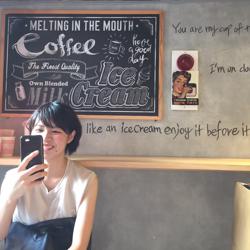 MELTING IN THE MOUTH
Coffee
have
a good
day
The Finest Quality
Own Blended
Milk
Ice
Cream
You are my cup of t
I'm on clo
like an iceCream enjoy it before it